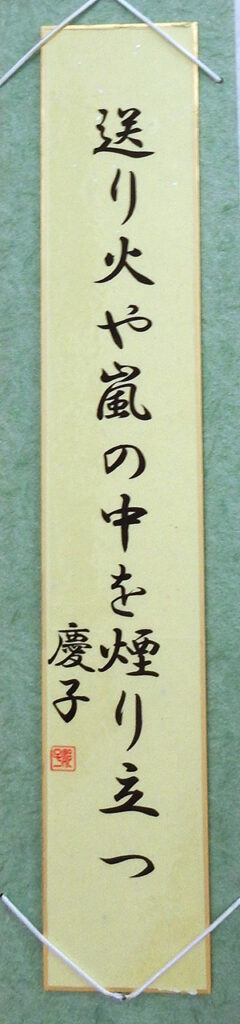 送り火や嵐の中を煙り立つ
慶子